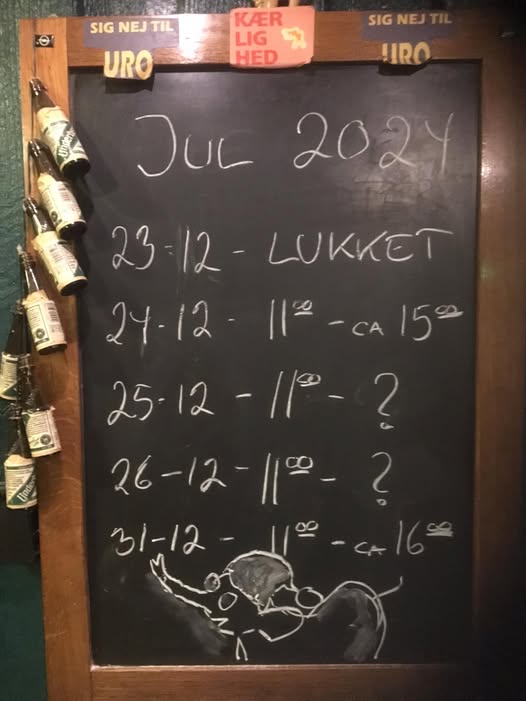 SIG NEJ TIL
URO
KÆR
LIG
HED
SIG NEJ TIL
URO
JUL 2024
23-12 - LUKKET
24-12 - 11⁰⁰ - CA 15⁰⁰
25-12 - 11⁰⁰ - ?
26-12 - 11⁰⁰ - ?
31-12 - 11⁰⁰ - CA 16⁰⁰